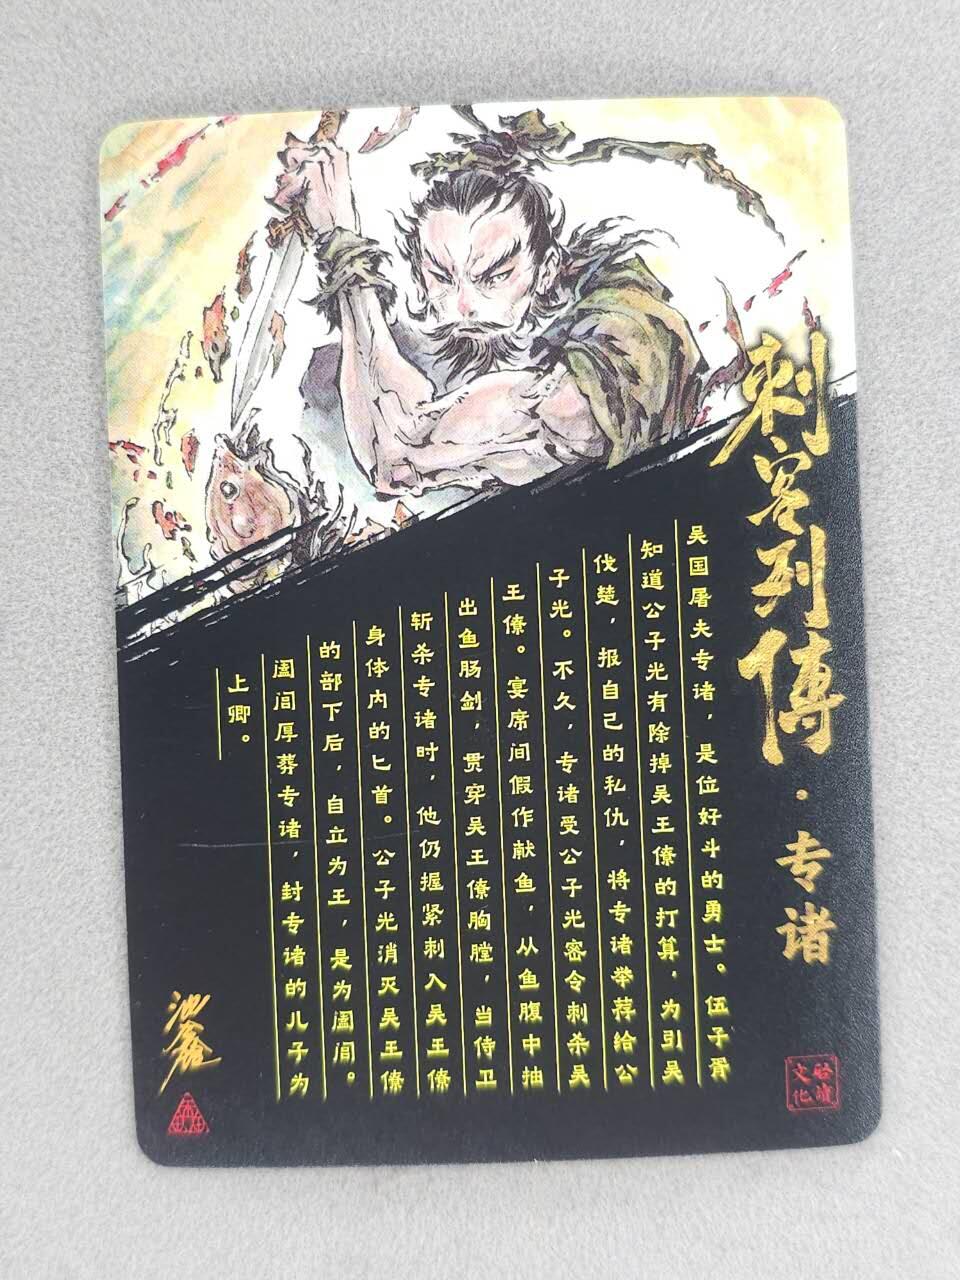 刺客列傳·专诸
吴国屠夫专诸，是位好斗的勇士。伍子胥
知道公子光有除掉吴王僚的打算，为引吴
伐楚，报自己的私仇，将专诸举荐给公
子光。不久，专诸受公子光密令刺杀吴
王僚。宴席间假作献鱼，从鱼腹中抽
出鱼肠剑，贯穿吴王僚胸膛，当侍卫
斩杀专诸时，他仍握紧刺入吴王僚
身体内的匕首。公子光消灭吴王僚
的部下后，自立为王，是为阖闾。
阖闾厚葬专诸，封专诸的儿子为
上卿。
池鑫
文化